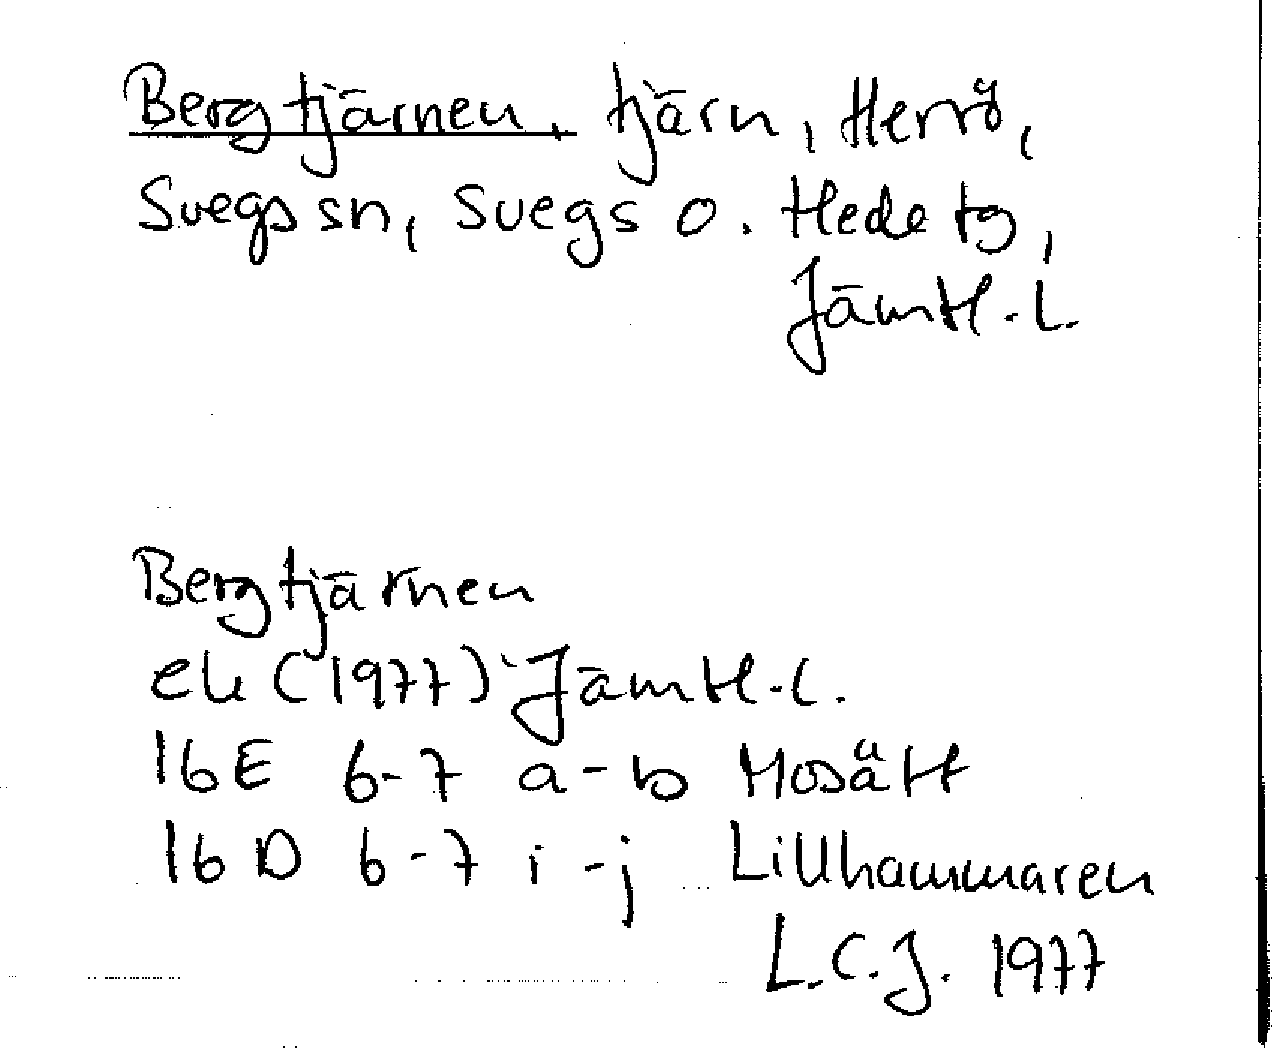 Bergtjärnen, tjärn, Herrö,
Svegs sn, Svegs o. Hede tg,
Jämtl. l.
Bergtjärnen
ek (1977) Jämtl. l.
16E 6-7 a-b Mosätt
16D 6-7 i-j Lillhammaren
L.C.J. 1977